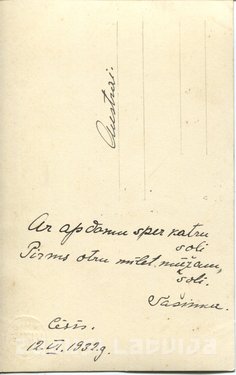 Austrai.
Ar apdomu sper katru
soli
Pirms otru mīlet mūžam,
soli.
Cēsis.
12.VI.1932.g.
Latvija